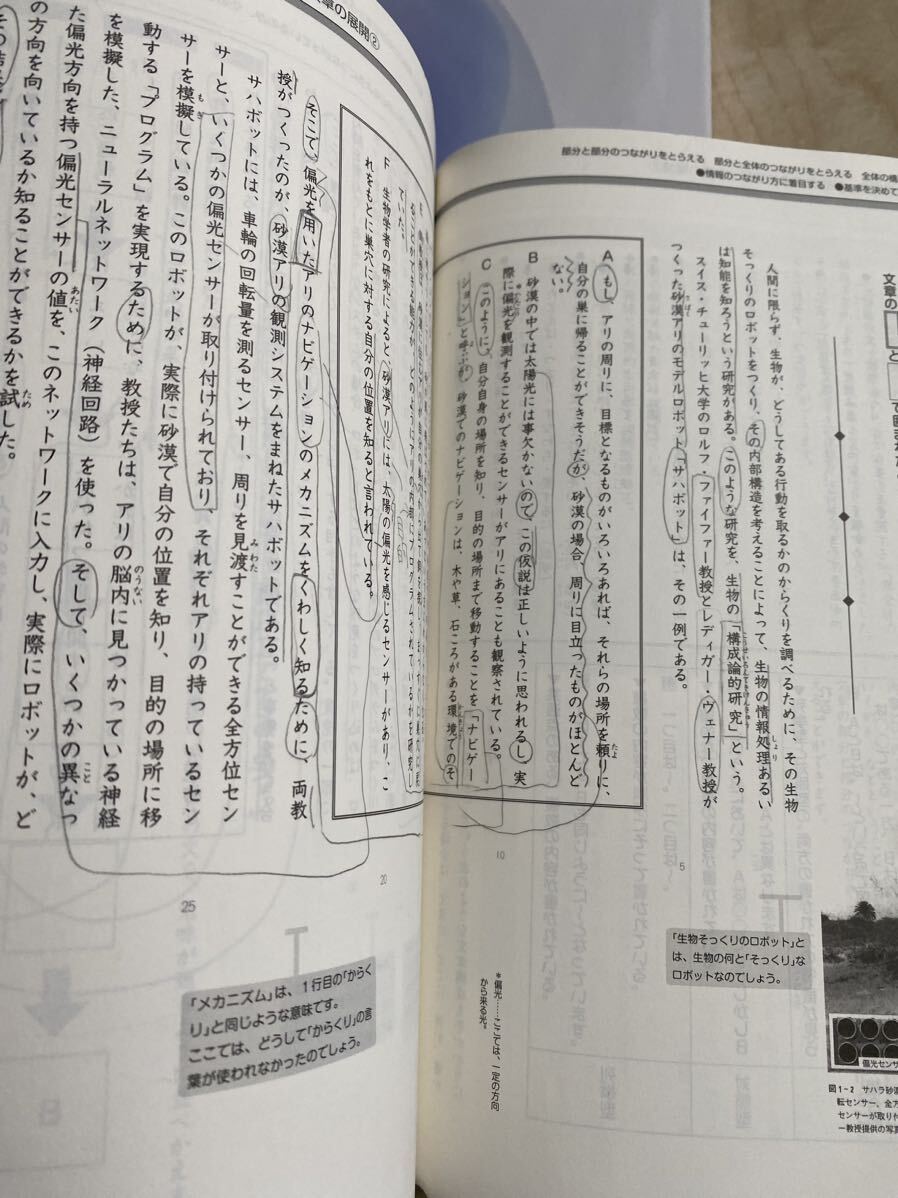 部分と部分のつながりをとらえる　部分と全体のつながりをとらえる　全体の構
●情報のつながり方に着目する　●基準を決めて
文章の
と
人間に限らず、生物が、どうしてある行動を取るのかのからくりを調べるために、その生物
そっくりのロボットをつくり、その内部構造を考えることによって、生物の情報処理あるい
は知能を知ろうという研究がある。このような研究を、生物の「構成論的研究」という。
スイス・チューリッヒ大学のロルフ・ファイファー教授とレディガー・ヴェナー教授が
つくった砂漠アリのモデルロボット「サハボット」は、その一例である。
5
A　もし、アリの周りに、目標となるものがいろいろあれば、それらの場所を頼りに、
自分の巣に帰ることができそうだが、砂漠の場合、周りに目立ったものがほとんど
ない。
B　砂漠の中では太陽光には事欠かないので、この仮説は正しいように思われるし、実
際に偏光を観測することができるセンサーがアリにあることも観察されている。
C　このように、自分自身の場所を知り、目的の場所まで移動することを、「ナビゲー
ション」と呼ぶが、砂漠でのナビゲーションは、木や草、石ころがある環境でのそ
10
「生物そっくりのロボット」と
は、生物の何と「そっくり」な
ロボットなのでしょう。
＊偏光……ここでは、一定の方向
から来る光。
偏光センサ
図1－2　サハラ砂漠
転センサー、全方
センサーが取り付
ー教授提供の写真
章の展開②
ていた。
F　生物学者の研究によると、砂漠アリには、太陽の偏光を感じるセンサーがあり、こ
れをもとに巣穴に対する自分の位置を知ると言われている。
20
そこで、偏光を用いたアリのナビゲーションのメカニズムをくわしく知るために、両教
授がつくったのが、砂漠アリの観測システムをまねたサハボットである。
サハボットには、車輪の回転量を測るセンサー、周りを見渡すことができる全方位セン
サーと、いくつかの偏光センサーが取り付けられており、それぞれアリの持っているセン
サーを模擬している。このロボットが、実際に砂漠で自分の位置を知り、目的の場所に移
25
動する「プログラム」を実現するために、教授たちは、アリの脳内に見つかっている神経
を模擬した、ニューラルネットワーク（神経回路）を使った。そして、いくつかの異なっ
た偏光方向を持つ偏光センサーの値を、このネットワークに入力し、実際にロボットが、ど
の方向を向いているか知ることができるかを試した。
「メカニズム」は、1行目の「からく
り」と同じような意味です。
ここでは、どうして「からくり」の言
葉が使われなかったのでしょう。